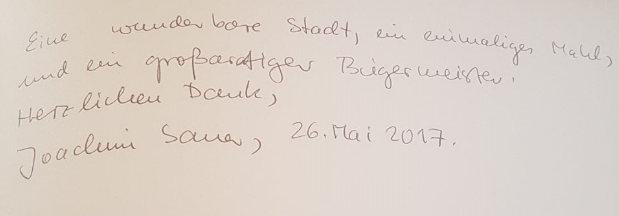 Eine wunderbare Stadt, ein einmaliges Mahl,
und ein großartiger Bürgermeister.
Herzlichen Dank,
Joachim Sauer, 26. Mai 2017.